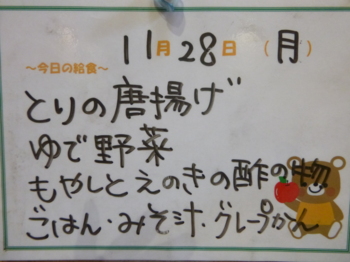 11月28日(月)
～今日の給食～
とりの唐揚げ
ゆで野菜
もやしとえのきの酢の物
ごはん・みそ汁・グレープかん